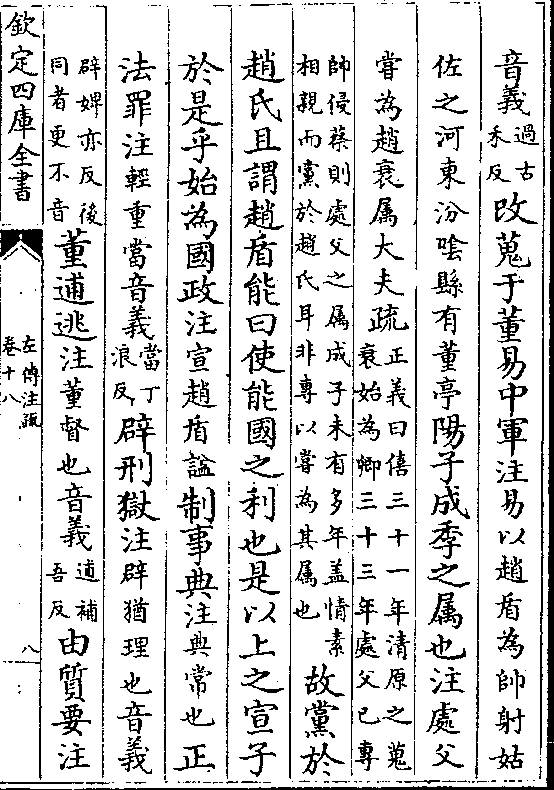 音義過古禾反改蒐于董易中軍注易以趙盾為帥射姑
佐之河東汾唫縣有董亭陽子成季之属也注處父
嘗為趙衰属大夫疏正義曰僖三十一年清原之蒐衰始為卿三十三年處父已專
帥侵蔡則處父之属成子未有多年盖情素相親而黨於趙氏耳非專以嘗為其属也故黨於
趙氏且謂趙盾能曰使能國之利也是以上之宣子
於是乎始為國政注宣趙盾諡制事典注典常也正
法罪注輕重當音義當丁浪反辟刑獄注辟猶理也音義
辟婢亦反後同者更不音董逋逃注董督也音義逋補吾反由質要注
欽定四庫全書
左傳注疏
卷十八
八